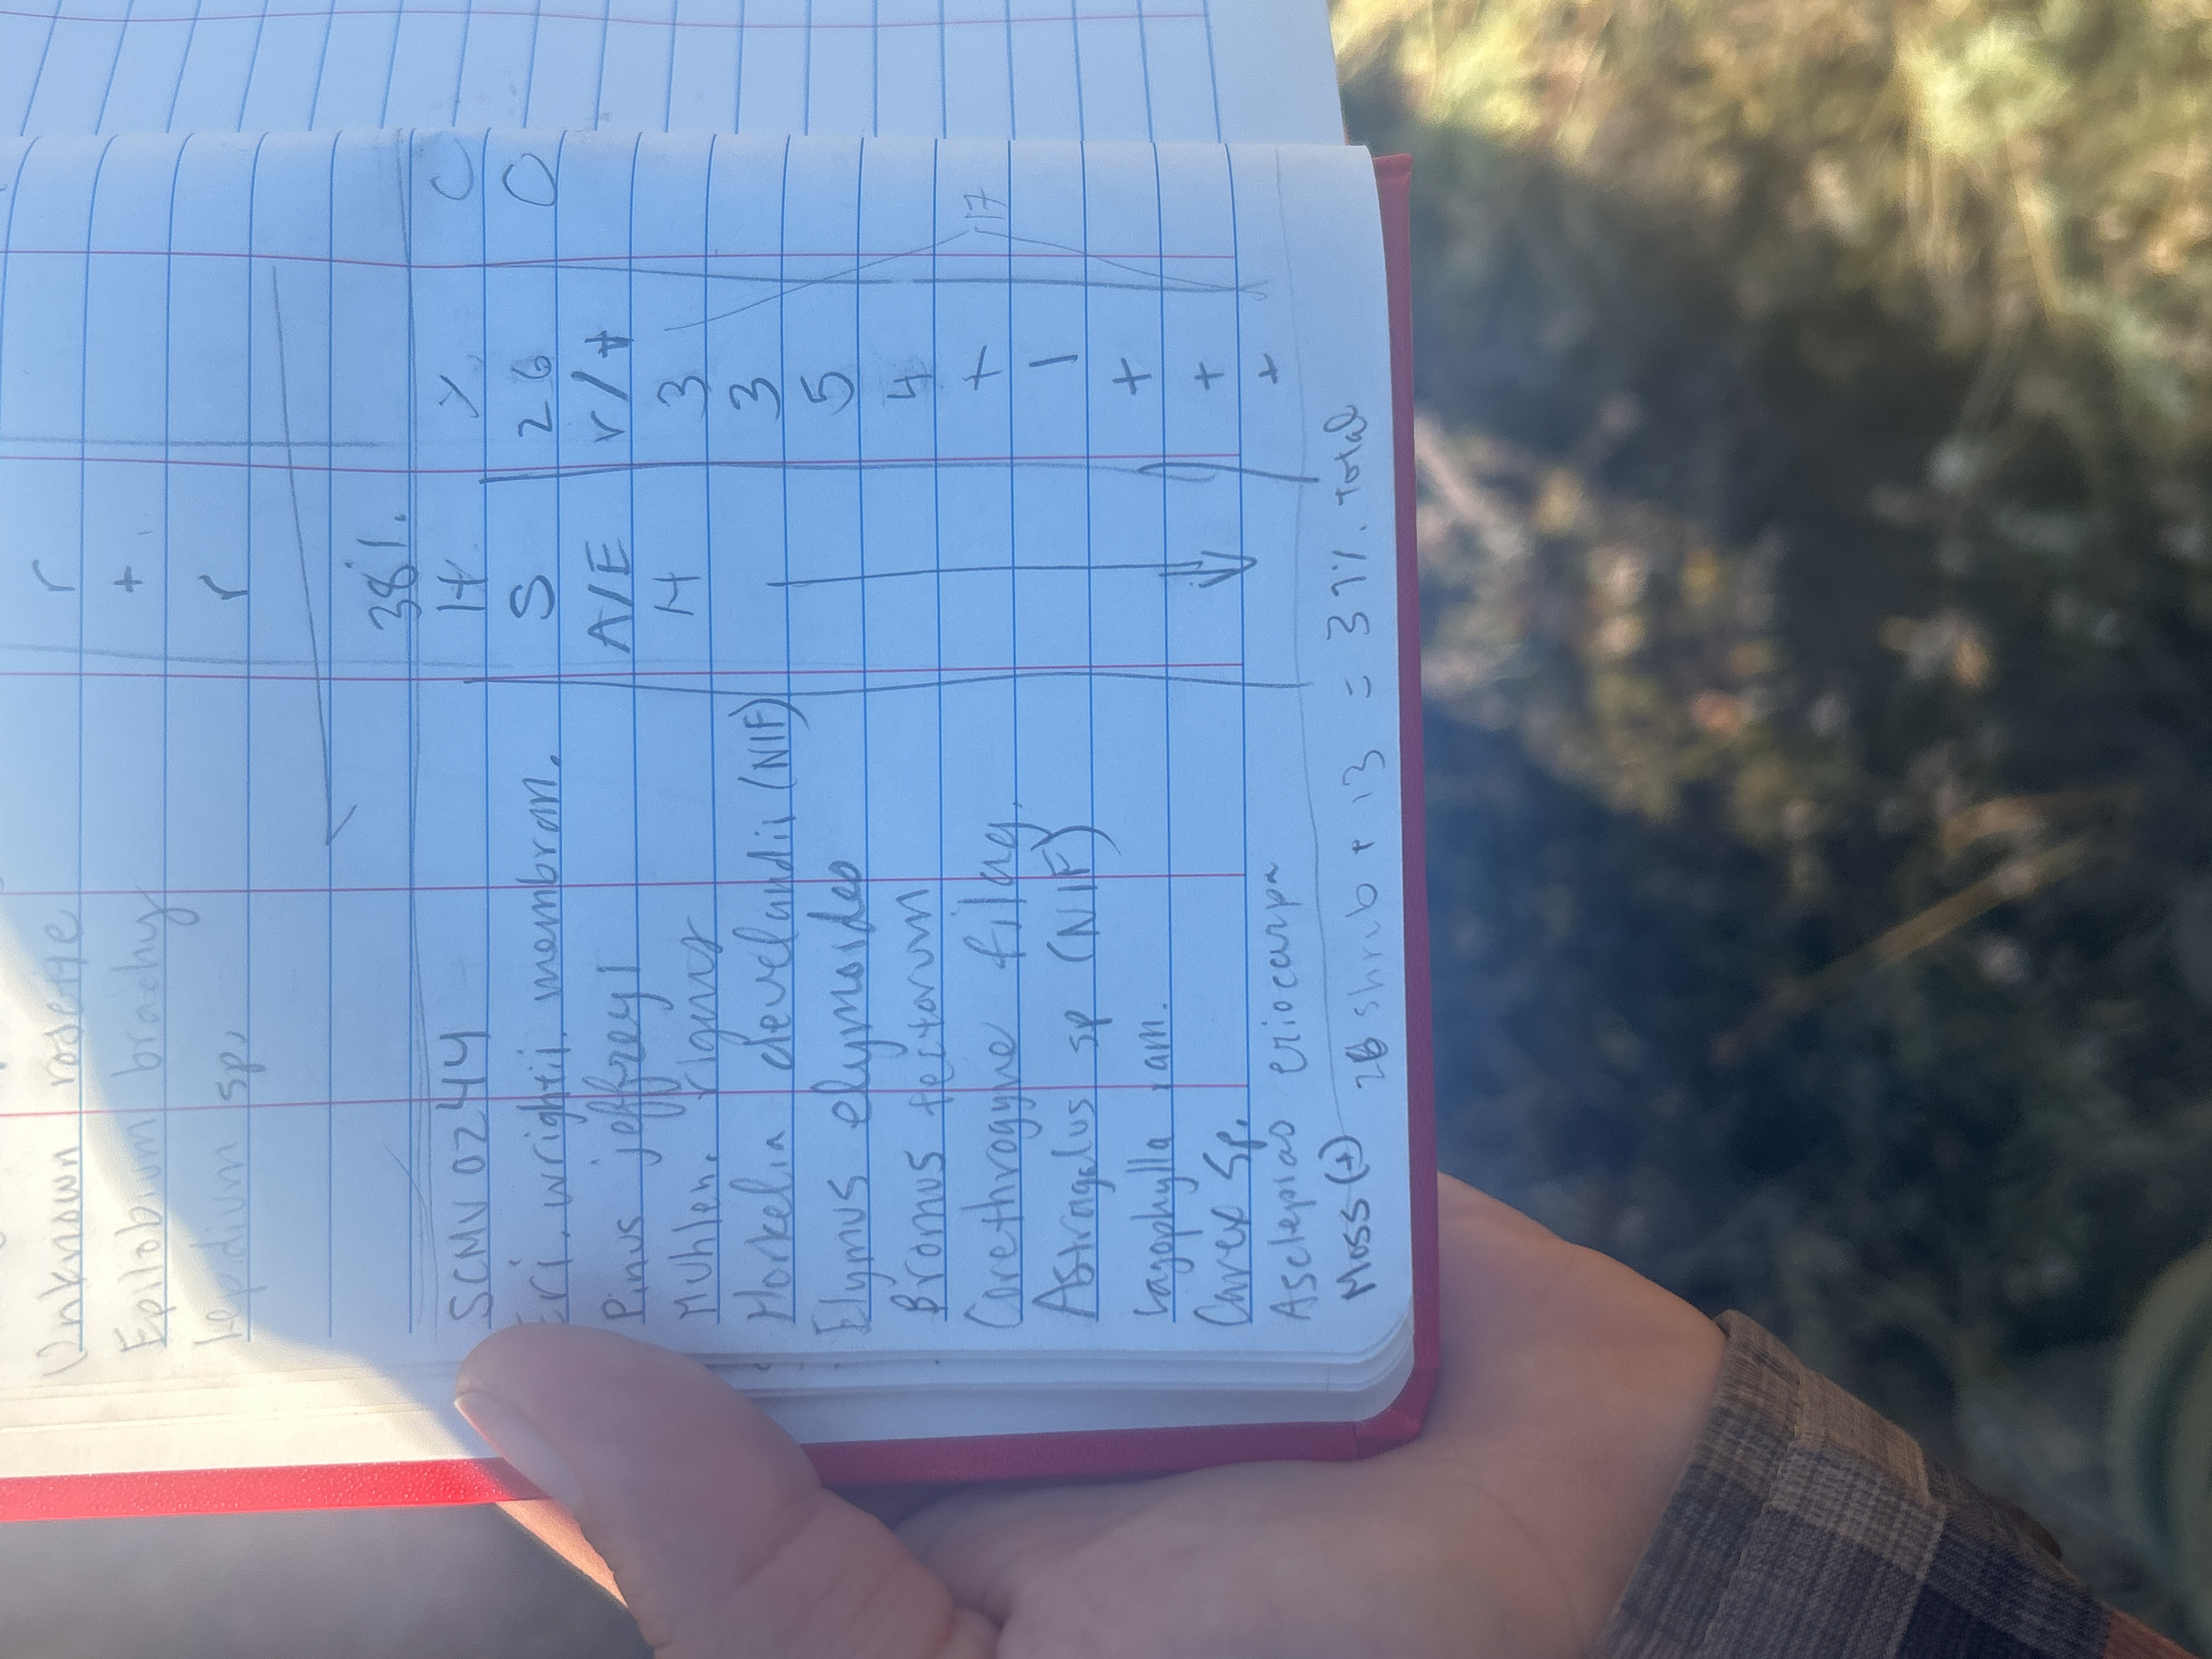 Unknown rosette r
Epilobium brachy +
Lepdium sp. r
38%.
SCMV0244 H % C
Eri. wrightii membran. S 26 0
Pinus jeffreyi A/E r/+
Muhlen. rigens H 3
Horkelia clevelandii (NIF) 3
Elymus elymoides 5
Bromus tectorum 4
Corethrogyne filag. + 17
Astragalus sp (NIF) 1
Lagophylla ram. +
Carex sp. +
Asclepias eriocarpa +
Moss (+) 26 shrub + 13 = 37%. total